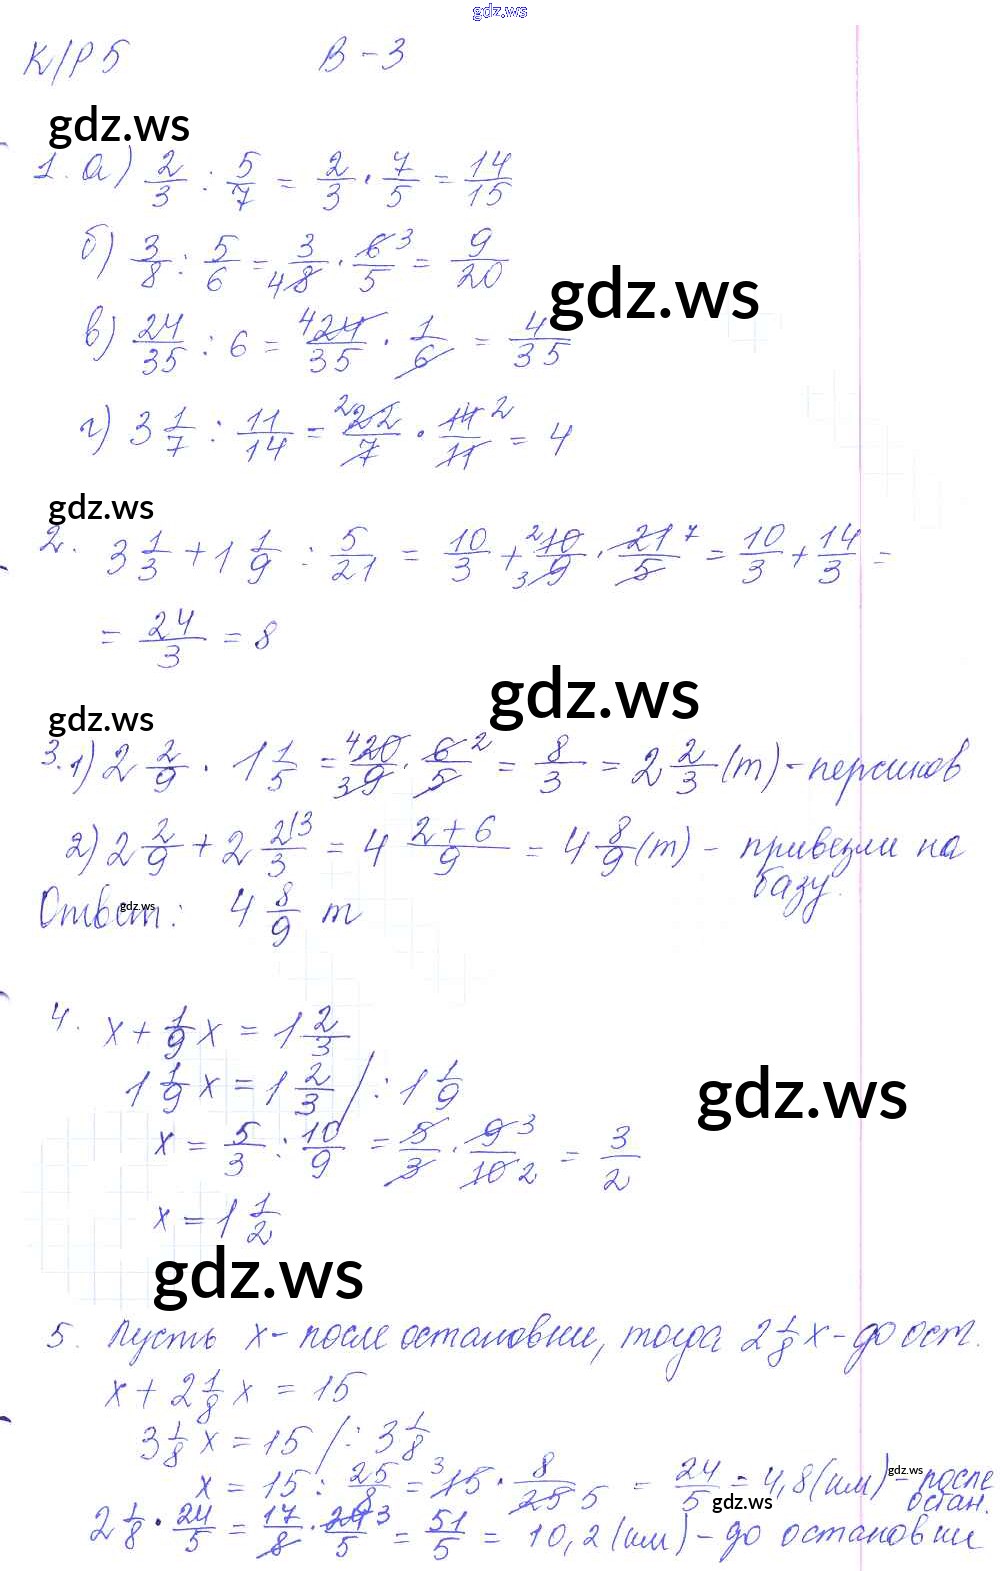 gdz.ws
К/Р 5 В – 3
gdz.ws
1. а) 2/3 : 5/7 = 2/3 · 7/5 = 14/15
б) 3/8 : 5/6 = 3/4 8 · 6 3/5 = 9/20
gdz.ws
в) 24/35 : 6 = 4 24/35 · 1/6 = 4/35
г) 3 1/7 : 11/14 = 2 22/7 · 14 2/11 = 4
gdz.ws
2. 3 1/3 + 1 1/9 : 5/21 = 10/3 + 2 10/3 9 · 21 7/5 = 10/3 + 14/3 =
= 24/3 = 8
gdz.ws
gdz.ws
3. 1) 2 2/9 · 1 1/5 = 4 20/3 9 · 6 2/5 = 8/3 = 2 2/3 (т) – персиков
2) 2 2/9 + 2 2|3/3 = 4 2+6/9 = 4 8/9 (т) – привезли на
базу.
gdz.ws
Ответ: 4 8/9 т
4. x + 1/9 x = 1 2/3
1 1/9 x = 1 2/3 / : 1 1/9
gdz.ws
x = 5/3 : 10/9 = 5/3 · 9 3/10 2 = 3/2
x = 1 1/2
gdz.ws
5. Пусть x – после остановки, тогда 2 1/8 x – до ост.
x + 2 1/8 x = 15
3 1/8 x = 15 / : 3 1/8
x = 15 : 25/8 = 3 15 · 8/25 5 = 24/5 = 4,8 (км) – после
остан.
gdz.ws
gdz.ws
2 1/8 · 24/5 = 17/8 · 24 3/5 = 51/5 = 10,2 (км) – до остановки